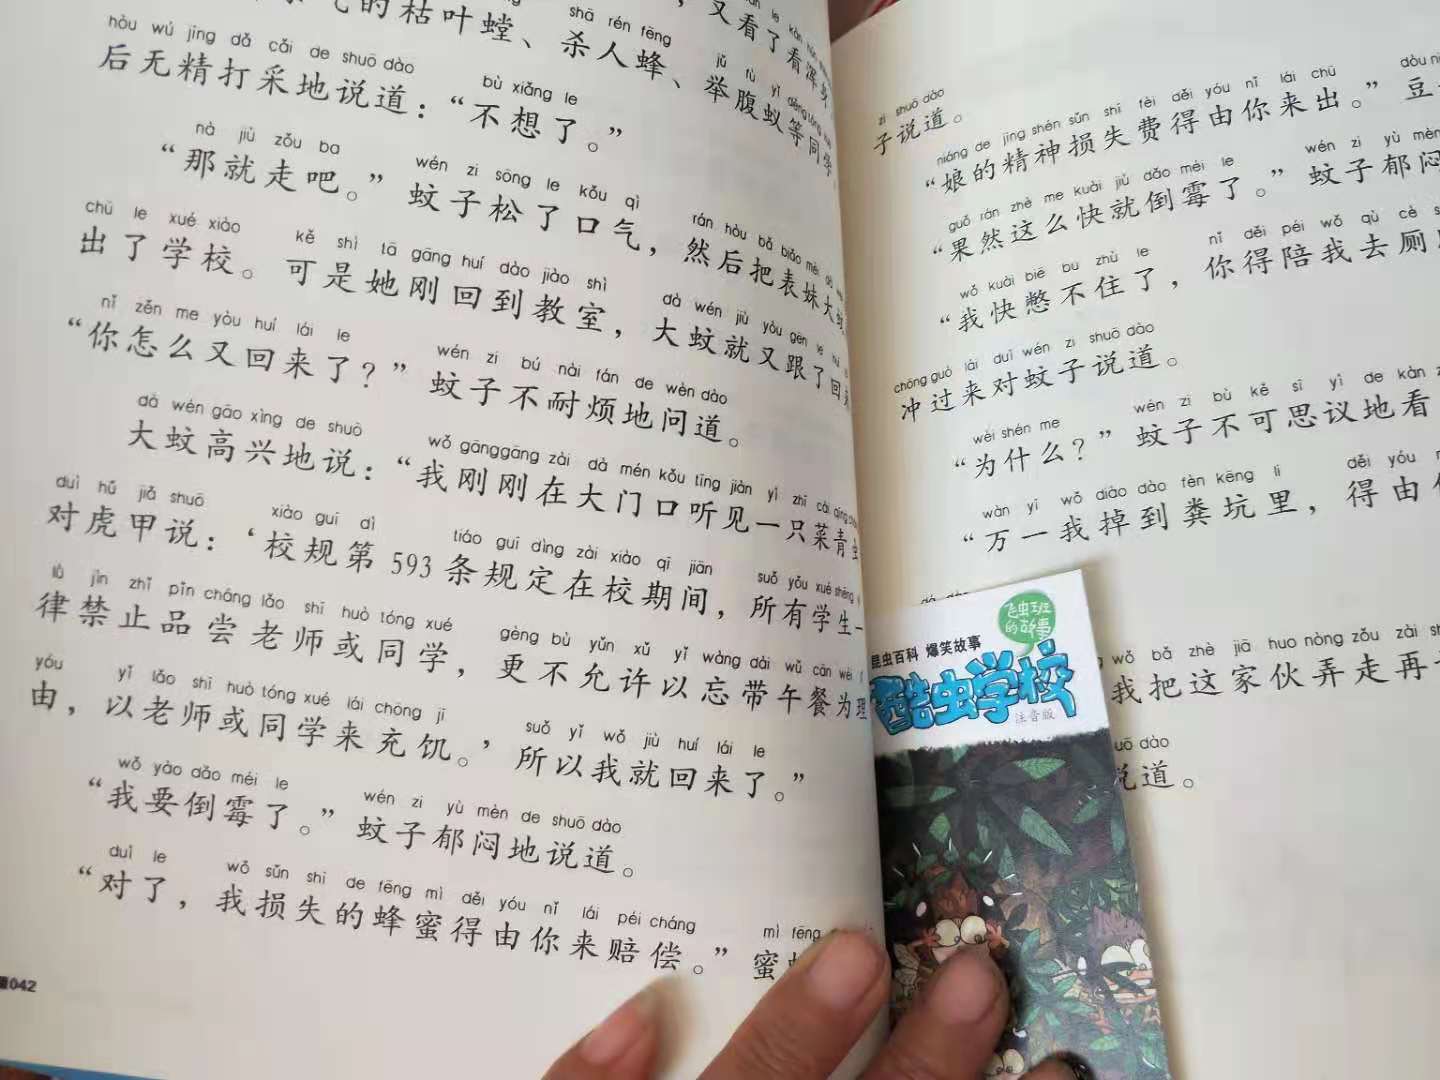 shā rén fēng
的枯叶螳、杀人蜂、举腹蚁等同学，
又看了看浑身
hòu wú jīng dǎ cǎi de shuō dào bù xiǎng le
后无精打采地说道：“不想了。”
nà jiù zǒu ba wén zi sōng le kǒu qì rán hòu bǎ biǎo mèi
“那就走吧。”蚊子松了口气，然后把表妹大蚊
chū le xué xiào kě shì tā gāng huí dào jiào shì dà wén jiù yòu gēn le
出了学校。可是她刚回到教室，大蚊就又跟了回来
nǐ zěn me yòu huí lái le wén zi bú nài fán de wèn dào
“你怎么又回来了？”蚊子不耐烦地问道。
dà wén gāo xìng de shuō wǒ gānggāng zài dà mén kǒu tīng jiàn yì zhī cài qīng
大蚊高兴地说：“我刚刚在大门口听见一只菜青虫
duì hǔ jiǎ shuō xiào guī dì tiáo guī dìng zài xiào qī jiān suǒ yǒu xué shēng
对虎甲说：‘校规第593条规定在校期间，所有学生一
lǜ jìn zhǐ pǐn cháng lǎo shī huò tóng xué gèng bù yǔn xǔ yǐ wàng dài wǔ cān wéi
律禁止品尝老师或同学，更不允许以忘带午餐为理
yóu yǐ lǎo shī huò tóng xué lái chōng jī suǒ yǐ wǒ jiù huí lái le
由，以老师或同学来充饥。’所以我就回来了。”
wǒ yào dǎo méi le wén zi yù mèn de shuō dào
“我要倒霉了。”蚊子郁闷地说道。
duì le wǒ sǔn shī de fēng mì děi yóu nǐ lái péi cháng mì fēng
“对了，我损失的蜂蜜得由你来赔偿。”蜜
042
zi shuō dào
子说道。
niáng de jīng shén sǔn shī fèi děi yóu nǐ lái chū dòu
“娘的精神损失费得由你来出。”豆
guǒ rán zhè me kuài jiù dǎo méi le wén zi yù mèn
“果然这么快就倒霉了。”蚊子郁闷
wǒ kuài biē bu zhù le nǐ děi péi wǒ qù cè
“我快憋不住了，你得陪我去厕
chōng guò lái duì wén zi shuō dào
冲过来对蚊子说道。
wèi shén me wén zi bù kě sī yì de kàn
“为什么？”蚊子不可思议地看
wàn yī wǒ diào dào fèn kēng li děi yóu
“万一我掉到粪坑里，得由
wǒ bǎ zhè jiā huo nòng zǒu zài
我把这家伙弄走再
shuō dào
说道。
飞虫班的故事
昆虫百科 爆笑故事
酷虫学校
注音版